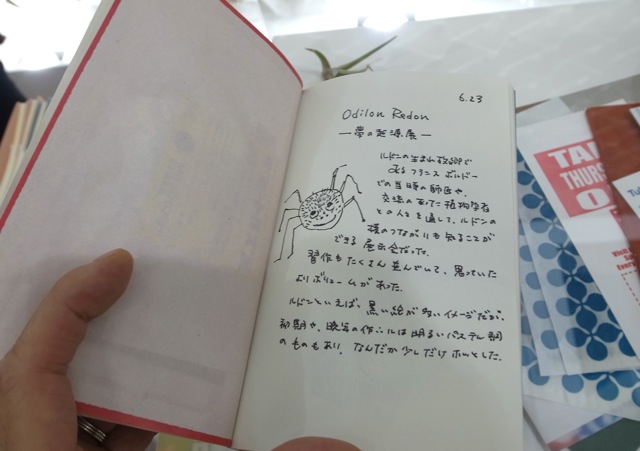 6.23
Odilon Redon
―夢の起源展―
ルドンの生まれ故郷で
ある フランス ボルドー
での当時の師匠や、
交流のあった植物学者
との人生を通して、ルドンの
様のつながりも知ることが
できる 展示会だった。
習作もたくさん並んでいて、思っていた
よりボリュームがあった。
ルドンといえば、黒い絵が多いイメージだが、
初期や、晩年の作品には明るいパステル調
のものもあり、なんだか少しだけホッとした。
TAB
THURS